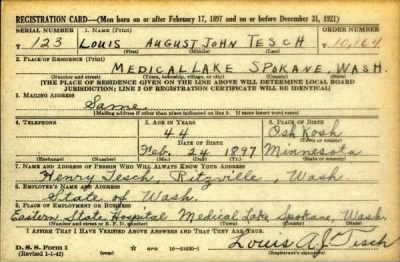 REGISTRATION CARD—(Men born on or after February 17, 1897 and on or before December 31, 1921)
SERIAL NUMBER 1. NAME (Print) ORDER NUMBER
U 123 LOUIS AUGUST JOHN TESCH 10,164
(First) (Middle) (Last)
2. PLACE OF RESIDENCE (Print)
MEDICAL LAKE SPOKANE, WASH.
(Number and street) (Town, township, village, or city) (County) (State)
[THE PLACE OF RESIDENCE GIVEN ON THE LINE ABOVE WILL DETERMINE LOCAL BOARD
JURISDICTION; LINE 2 OF REGISTRATION CERTIFICATE WILL BE IDENTICAL]
3. MAILING ADDRESS
Same
[Mailing address if other than place indicated on line 2. If same insert word same]
4. TELEPHONE 5. AGE IN YEARS 6. PLACE OF BIRTH
44 Osh Kosh
DATE OF BIRTH (Town or county)
Feb. 24 1897 Minnesota
(Exchange) (Number) (Mo.) (Day) (Yr.) (State or country)
7. NAME AND ADDRESS OF PERSON WHO WILL ALWAYS KNOW YOUR ADDRESS
Henry Tesch, Ritzville, Wash
8. EMPLOYER'S NAME AND ADDRESS
State of Wash.
9. PLACE OF EMPLOYMENT OR BUSINESS
Eastern State Hospital Medical Lake Spokane, Wash.
(Number and street or R. F. D. number) (Town) (County) (State)
I AFFIRM THAT I HAVE VERIFIED ABOVE ANSWERS AND THAT THEY ARE TRUE.
D. S. S. Form 1
(Revised 1-1-42) GPO 16-21630-1 Louis A J Tesch
(Registrant's signature)